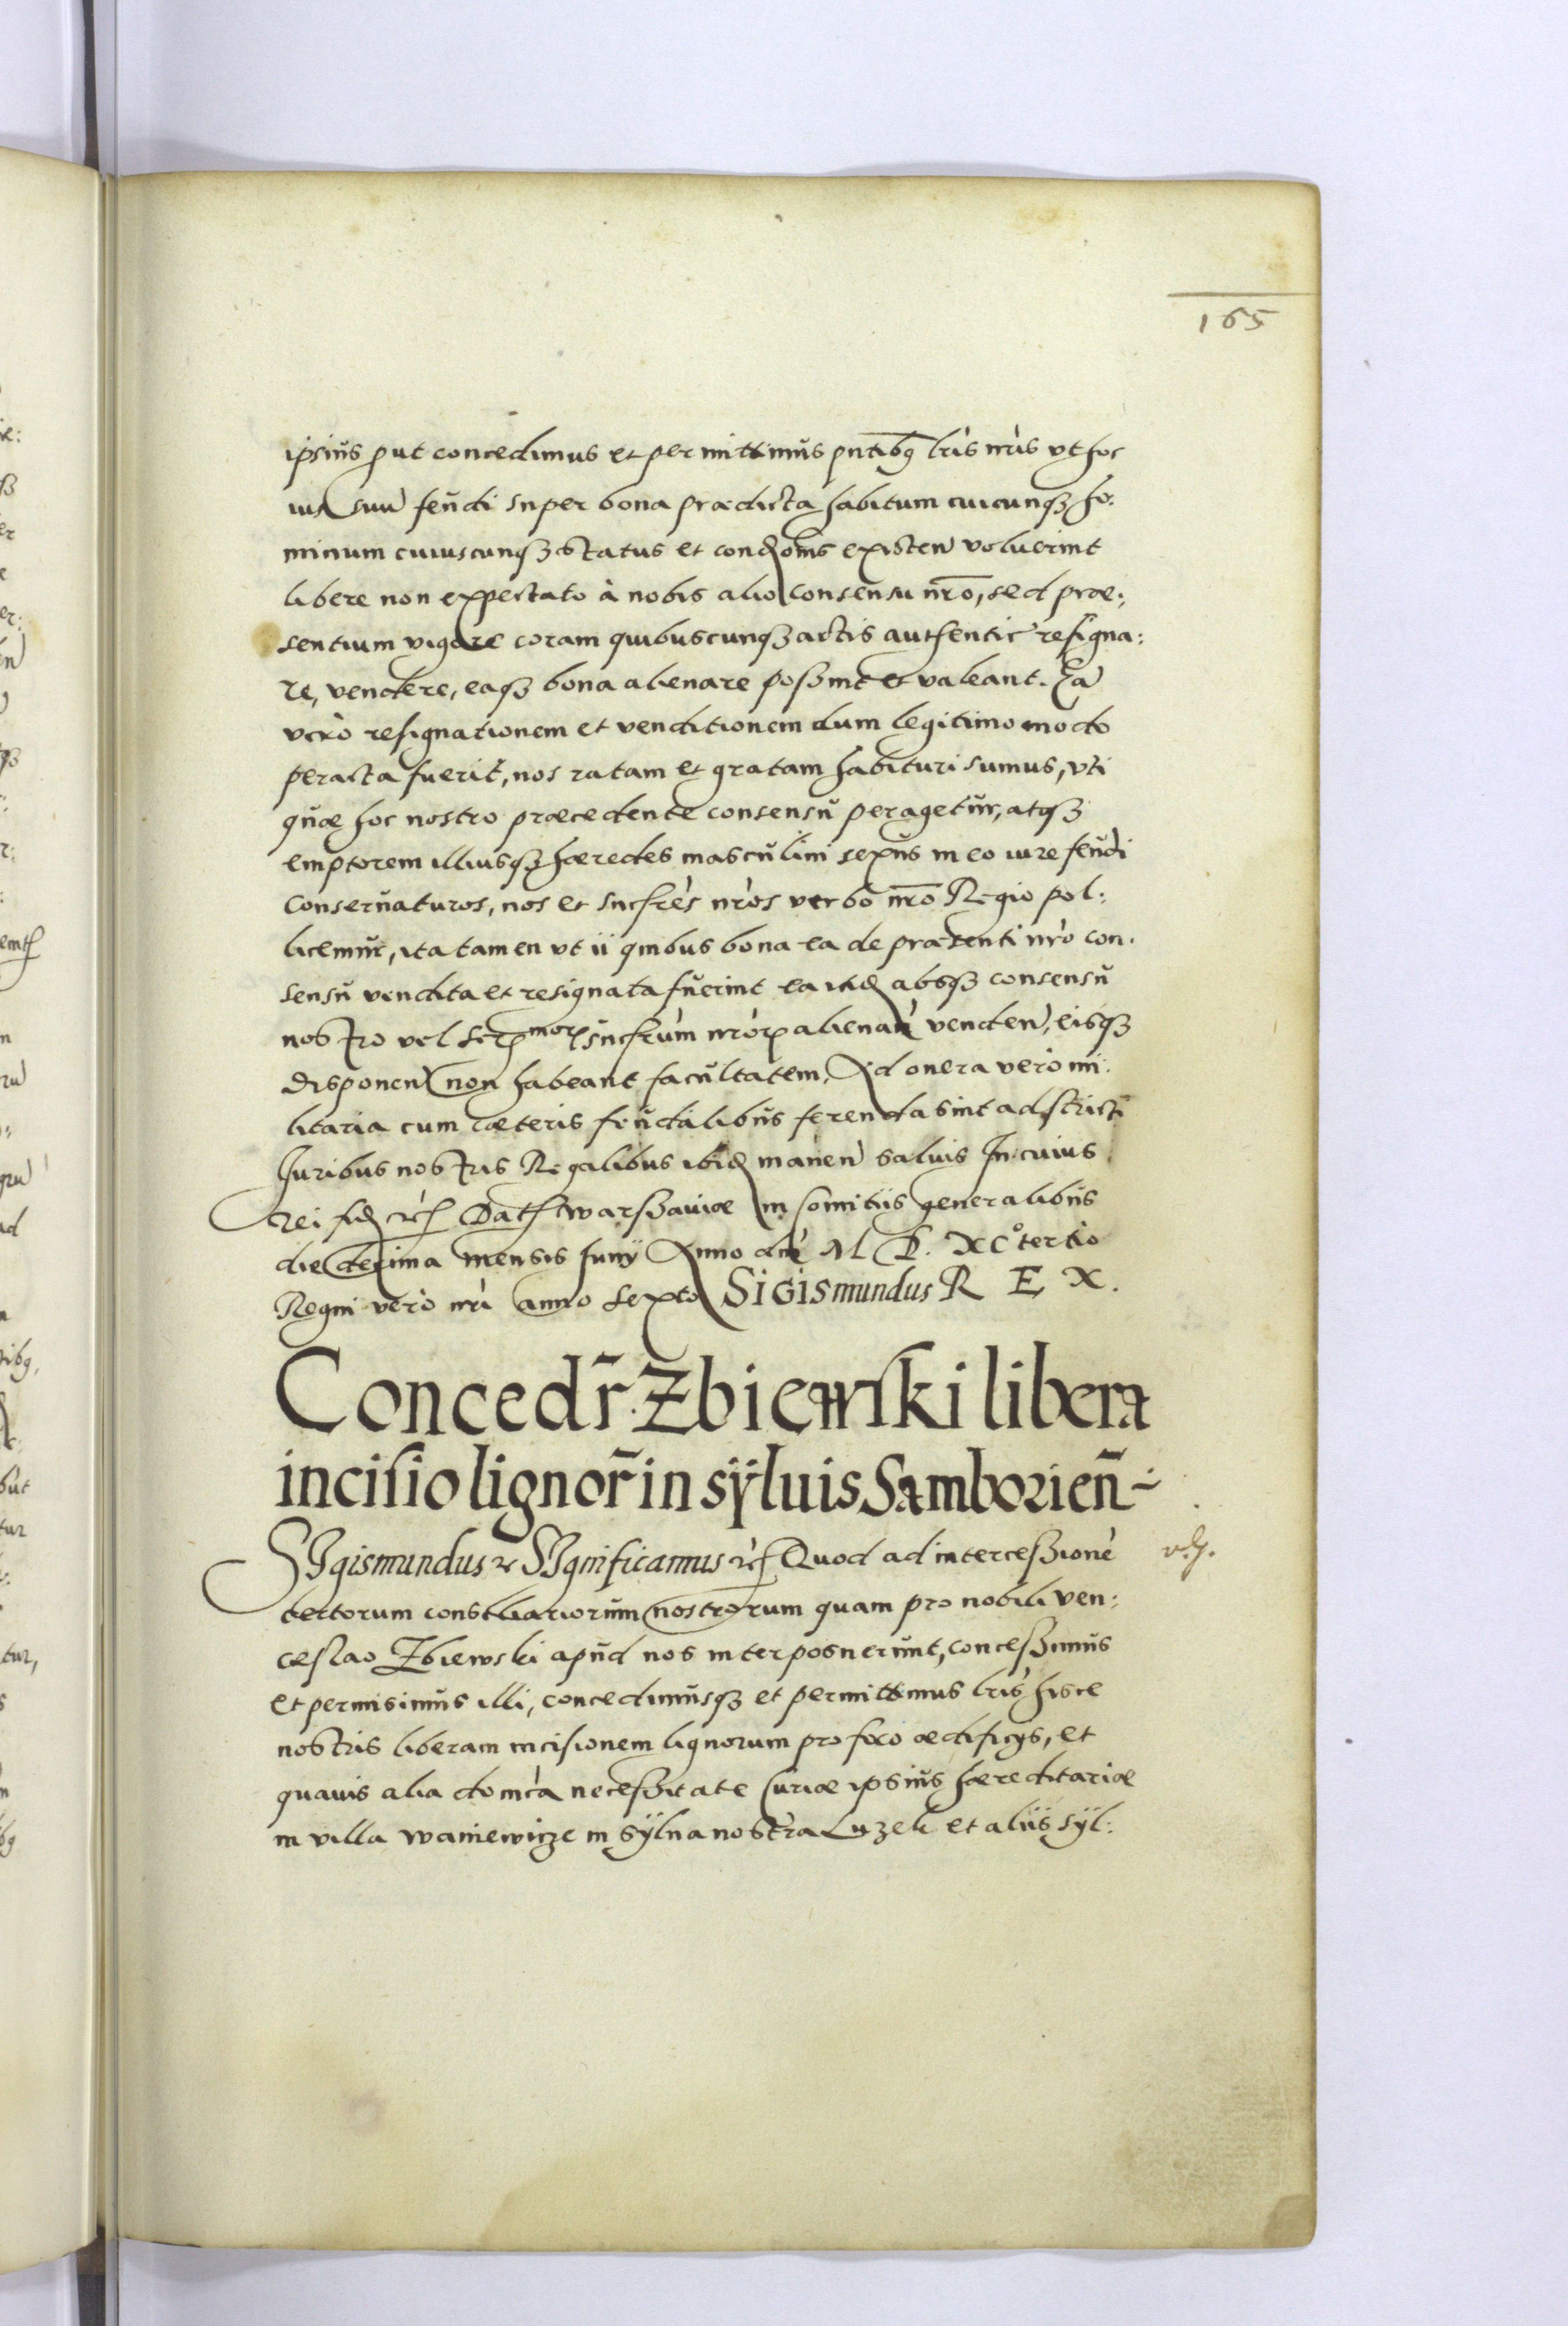 165
ipsius put concedimus et permittimus pntibq lris nris vt hoc
ius suu feudi super bona praedicta habitum cuicunq3 ho:
minum cuiuscunq3 status et condoms existen voluerint
libere non expectato à nobis alio consensu nro, sed prae:
sentium vigore coram quibuscunq3 actis authentic resigna:
re, vendere, eaq3 bona alienare possint et valeant. Ea
vero resignationem et venditionem dum legitimo modo
peracta fuerit, nos ratam et gratam habituri sumus, vti
quae hoc nostro praecedente consensu peragetur, atq3
emptorem illiusq3 haeredes masculini sexus in eo iure feudi
conseruaturos, nos et sucsres nros verbo nro Regio pol:
licemur, ita tamen vt ii quibus bona ea de praesenti nro con:
sensu vendita et resignata fuerint ea itid absq3 consensu
nostro vel Sermor sucsrum nror alienan venden, eisq3
disponen non habeant facultatem, Ad onera vero mi:
litaria cum caeteris feudalibus ferenda sint adstricti
Juribus nostris Regalibus ibid manen saluis In cuius
rei fid etc Dat Warssauiae in Comitiis generalibus
die decima mensis Junij Anno dni M D. XCo tertio
Regni vero nri anno sexto Sigismundus R E X.
Concedr. Zbiewski libera
incisio lignor in sÿluis Samborien
Sigismundus etc Significamus etc Quod ad intercessione
certorum consiliariorum nostrorum quam pro nobili ven:
ceslao Zbiewski apud nos interposuerunt, concessimus
et permisimus illi, concedimusq3 et permittimus lris hisce
nostris liberam incisionem lignorum pro foco aedificijs, et
quauis alia domca necessitate Curiae ipsius haereditariae
in villa Waniewicze in sÿlua nostra Luzek et aliis sÿl: